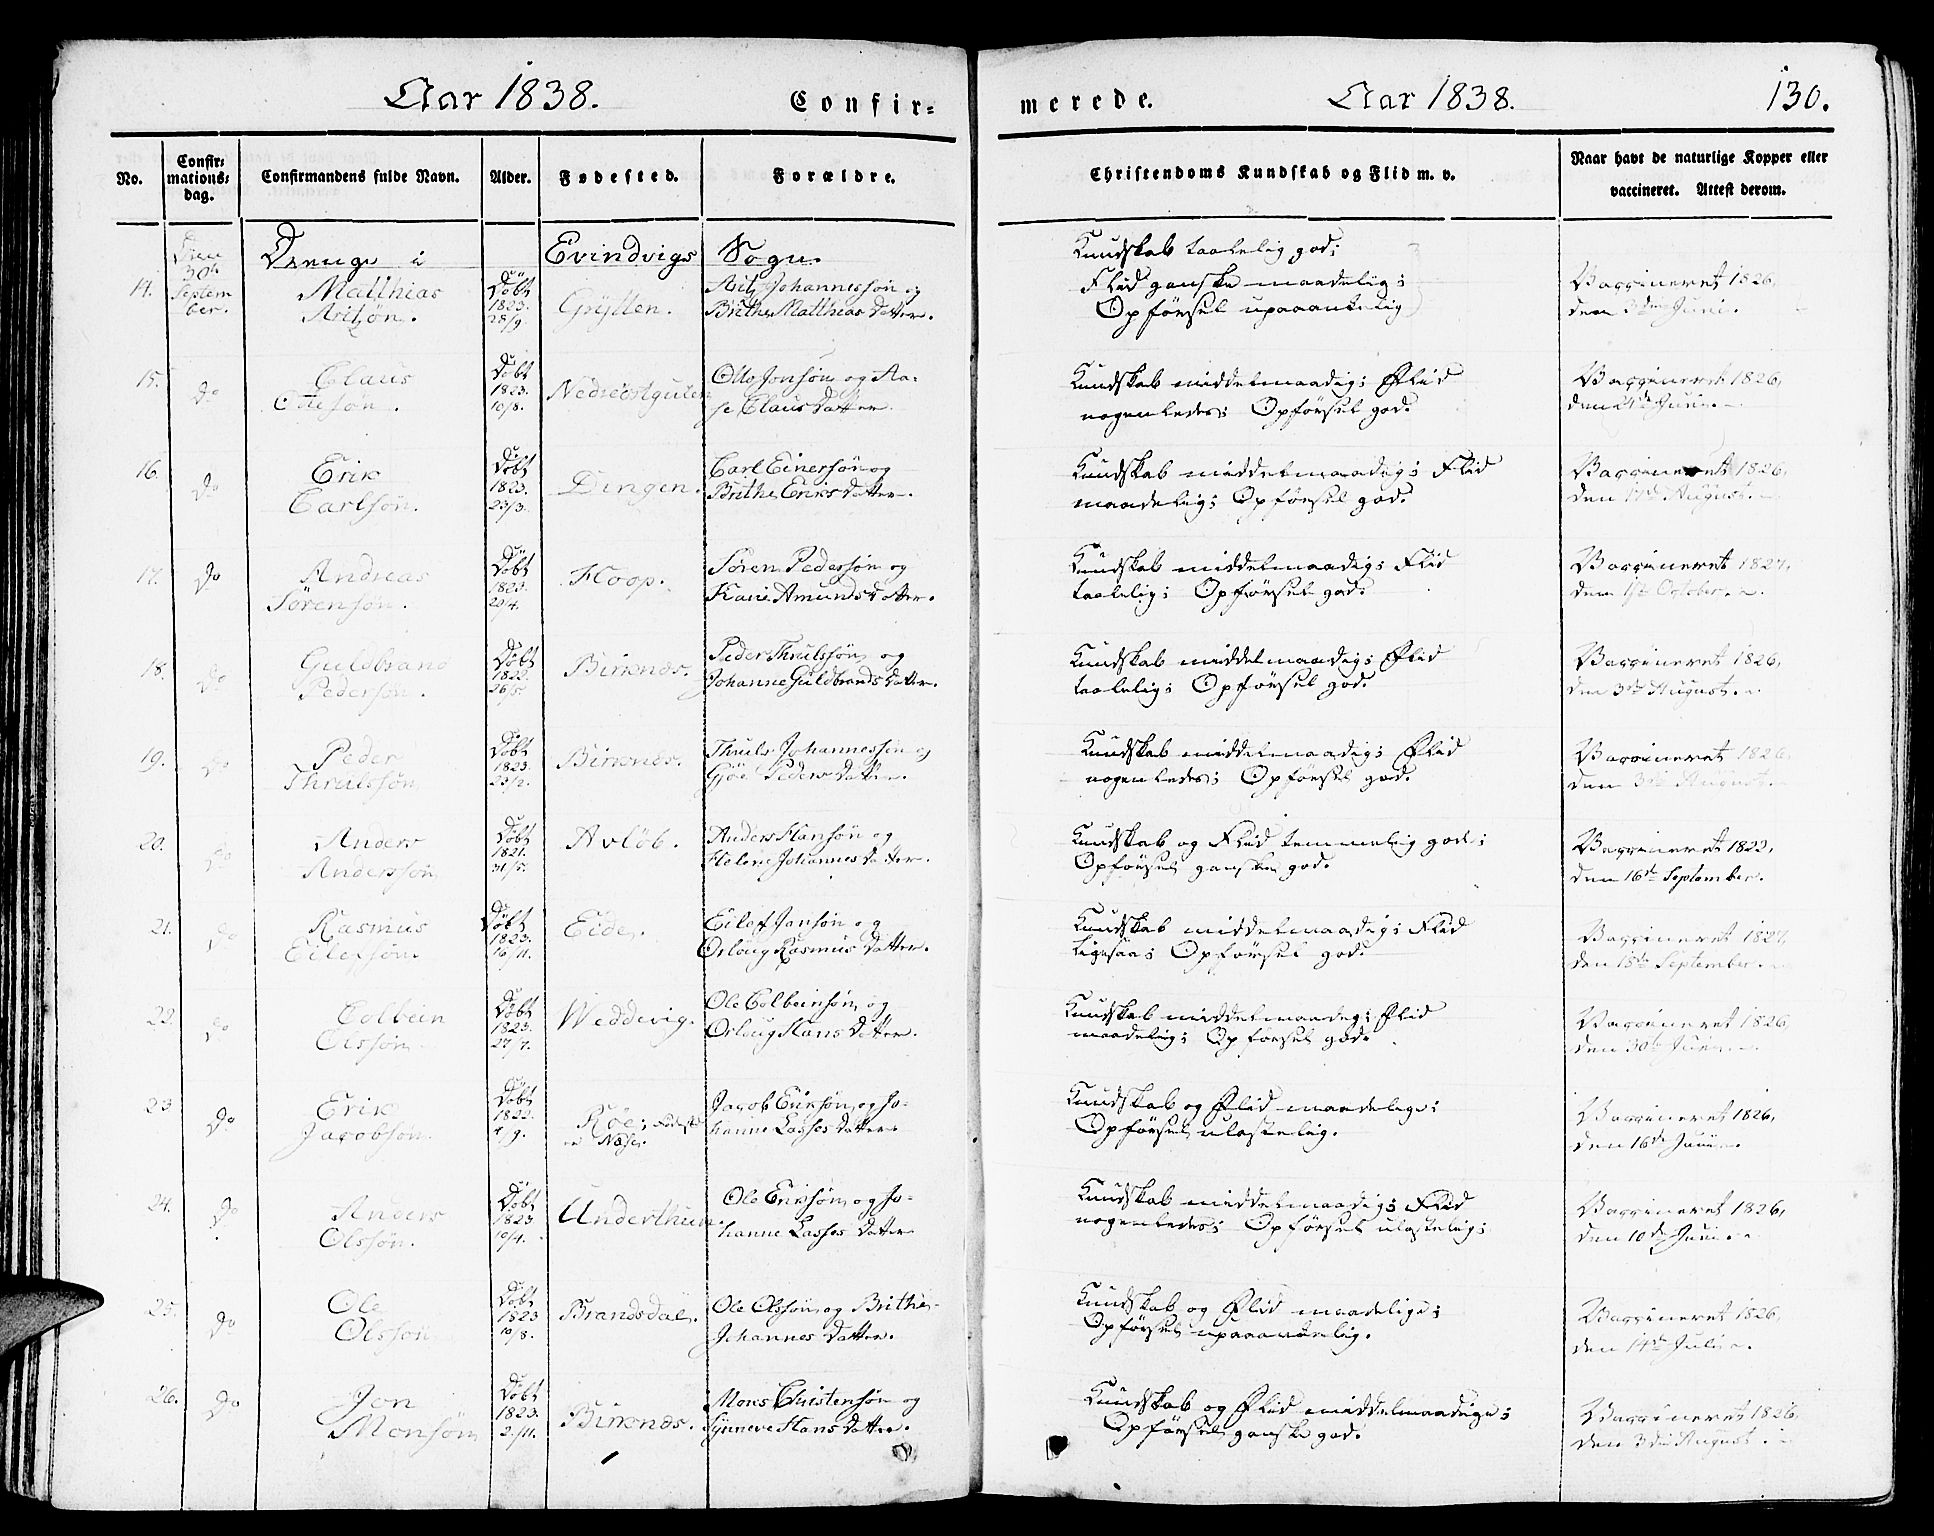 Aar 1838. Confir=
merede. Aar 1838. 130.
No. Confir=mations=dag. Confirmandens fulde Navn. Alder. Fødested. Forældre. Christendoms Kundskab og Flid m. v. Naar havt de naturlige Kopper eller vaccineret. Attest derom.
Drenge i Evindvigs Sogn.
14. Den 30te September. Matthias Døbt 1823. 28/9. Johannessøn og
Brithe Matthias Datter.
Kundskab taalelig god;
Flid ganske maadelig;
Opførsel upaaankelig
Vaccineret 1826,
den 3die Juni.
15. do Claus Ottesøn. Døbt 1823. 10/8. Nedreöstgulen Otto Jonsøn og Aa=
se Claus Datter.
Kundskab middelmaadig; Flid
nogenledes; Opførsel god.
Vaccineret 1826,
16. do Erik Carlsøn. Døbt 1823. 23/3. Dingen. Carl Einersøn og
Brithe Eriks Datter.
Kundskab middelmaadig; Flid
maadelig; Opførsel god.
Vaccineret 1826,
den 17de August.
17. do Andreas Sörensøn. Døbt 1823. 20/4. Hoop. Sören Pedersøn og
Kari Amunds Datter.
Kundskab middelmaadig; Flid
taalelig; Opførsel god.
Vaccineret 1827,
den 1ste October.
18. do Guldbrand Pedersøn. Døbt 1822. 26/5. Birknæs. Peder Thrulssøn og
Johanne Guldbrands Datter.
Kundskab middelmaadig; Flid
taalelig; Opførsel god.
Vaccineret 1826,
den 3die August.
19. do Peder Thrulssøn Døbt 1823. 23/2. Birknæs. Thruls Johannessøn og
Gjöe Peders Datter.
Kundskab middelmaadig; Flid
nogenledes; Opførsel god.
Vaccineret 1826,
den 3die August.
20. do Anders Anderssøn Døbt 1821. 31/5. Avlöb. Anders Hansøn og
Helene Johannes Datter.
Kundskab og Flid temmelig god;
Opførsel ganske god.
Vaccineret 1822,
den 16de September.
21. do Rasmus Eilefsøn. Døbt 1823. 16/11. Eide. Eilef Jonsøn og
Orloug Rasmus Datter.
Kundskab middelmaadig; Flid
ligesaa; Opførsel god.
Vaccineret 1827,
den 18de September.
22. do Colbein Olssøn. Døbt 1823. 27/7. Weddevig. Ole Colbeinsøn og
Orloug Hans Datter.
Kundskab middelmaadig; Flid
maadelig; Opførsel god.
Vaccineret 1826,
den 30te Juni.
23 do Erik Jacobsøn. Døbt 1822. /9. Röe; Jacob Eriksøn og Jo=
hanne Lasses Datter.
Kundskab og Flid maadelige;
Opførsel ulastelig.
Vaccineret 1826,
den 16de Juni.
24. do Anders Olssøn. Døbt 1823 10/4. Underthun. Ole Eriksøn og Jo=
hanne Lasses Datter
Kundskab middelmaadig; Flid
nogenledes; Opførsel ulastelig;
Vaccineret 1826,
den 10de Juni.
25. do Ole Olssøn Døbt 1823 10/8. Brandsdal. Ole Olssøn og Brithe
Johannes Datter.
Kundskab og Flid maadelige;
Opførsel upaaankelig.
Vaccineret 1826,
den 14de Juli.
26. do Jon Monsøn Døbt 1823. 2/11. Birknæs. Mons Christensøn og
Synneve Hans Datter.
Kundskab og Flid middelmaadige;
Opførsel ganske god.
Vaccineret 1826,
den 3die August.